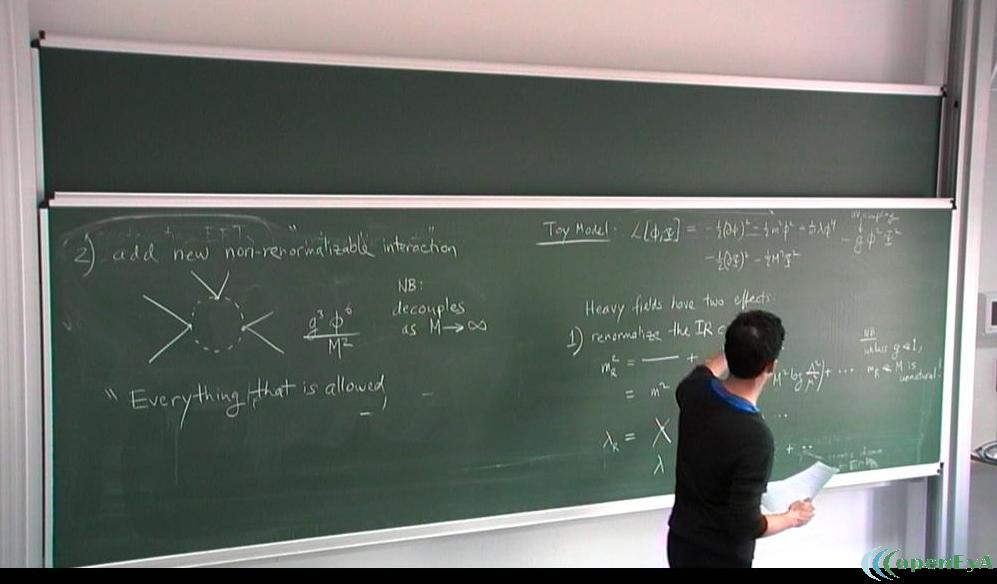 2) add new non-renormalizable interaction"
g³ φ⁶
M²
NB:
decouples
as M → ∞
" Everything that is allowed
Toy Model: L[φ,Ψ] = -½(∂φ)² - ½m²φ² - 1/4! λφ⁴
- g φ² Ψ²
UV coupling
-½(∂Ψ)² - ½M²Ψ²
Heavy fields have two effects:
1) renormalize the IR
m²_R = — +
= m²
M² log
+ ...
NB
unless g ≪ 1,
m_R ≪ M is
unnatural!
λ_R = X
λ
...
+ ...
openEyA